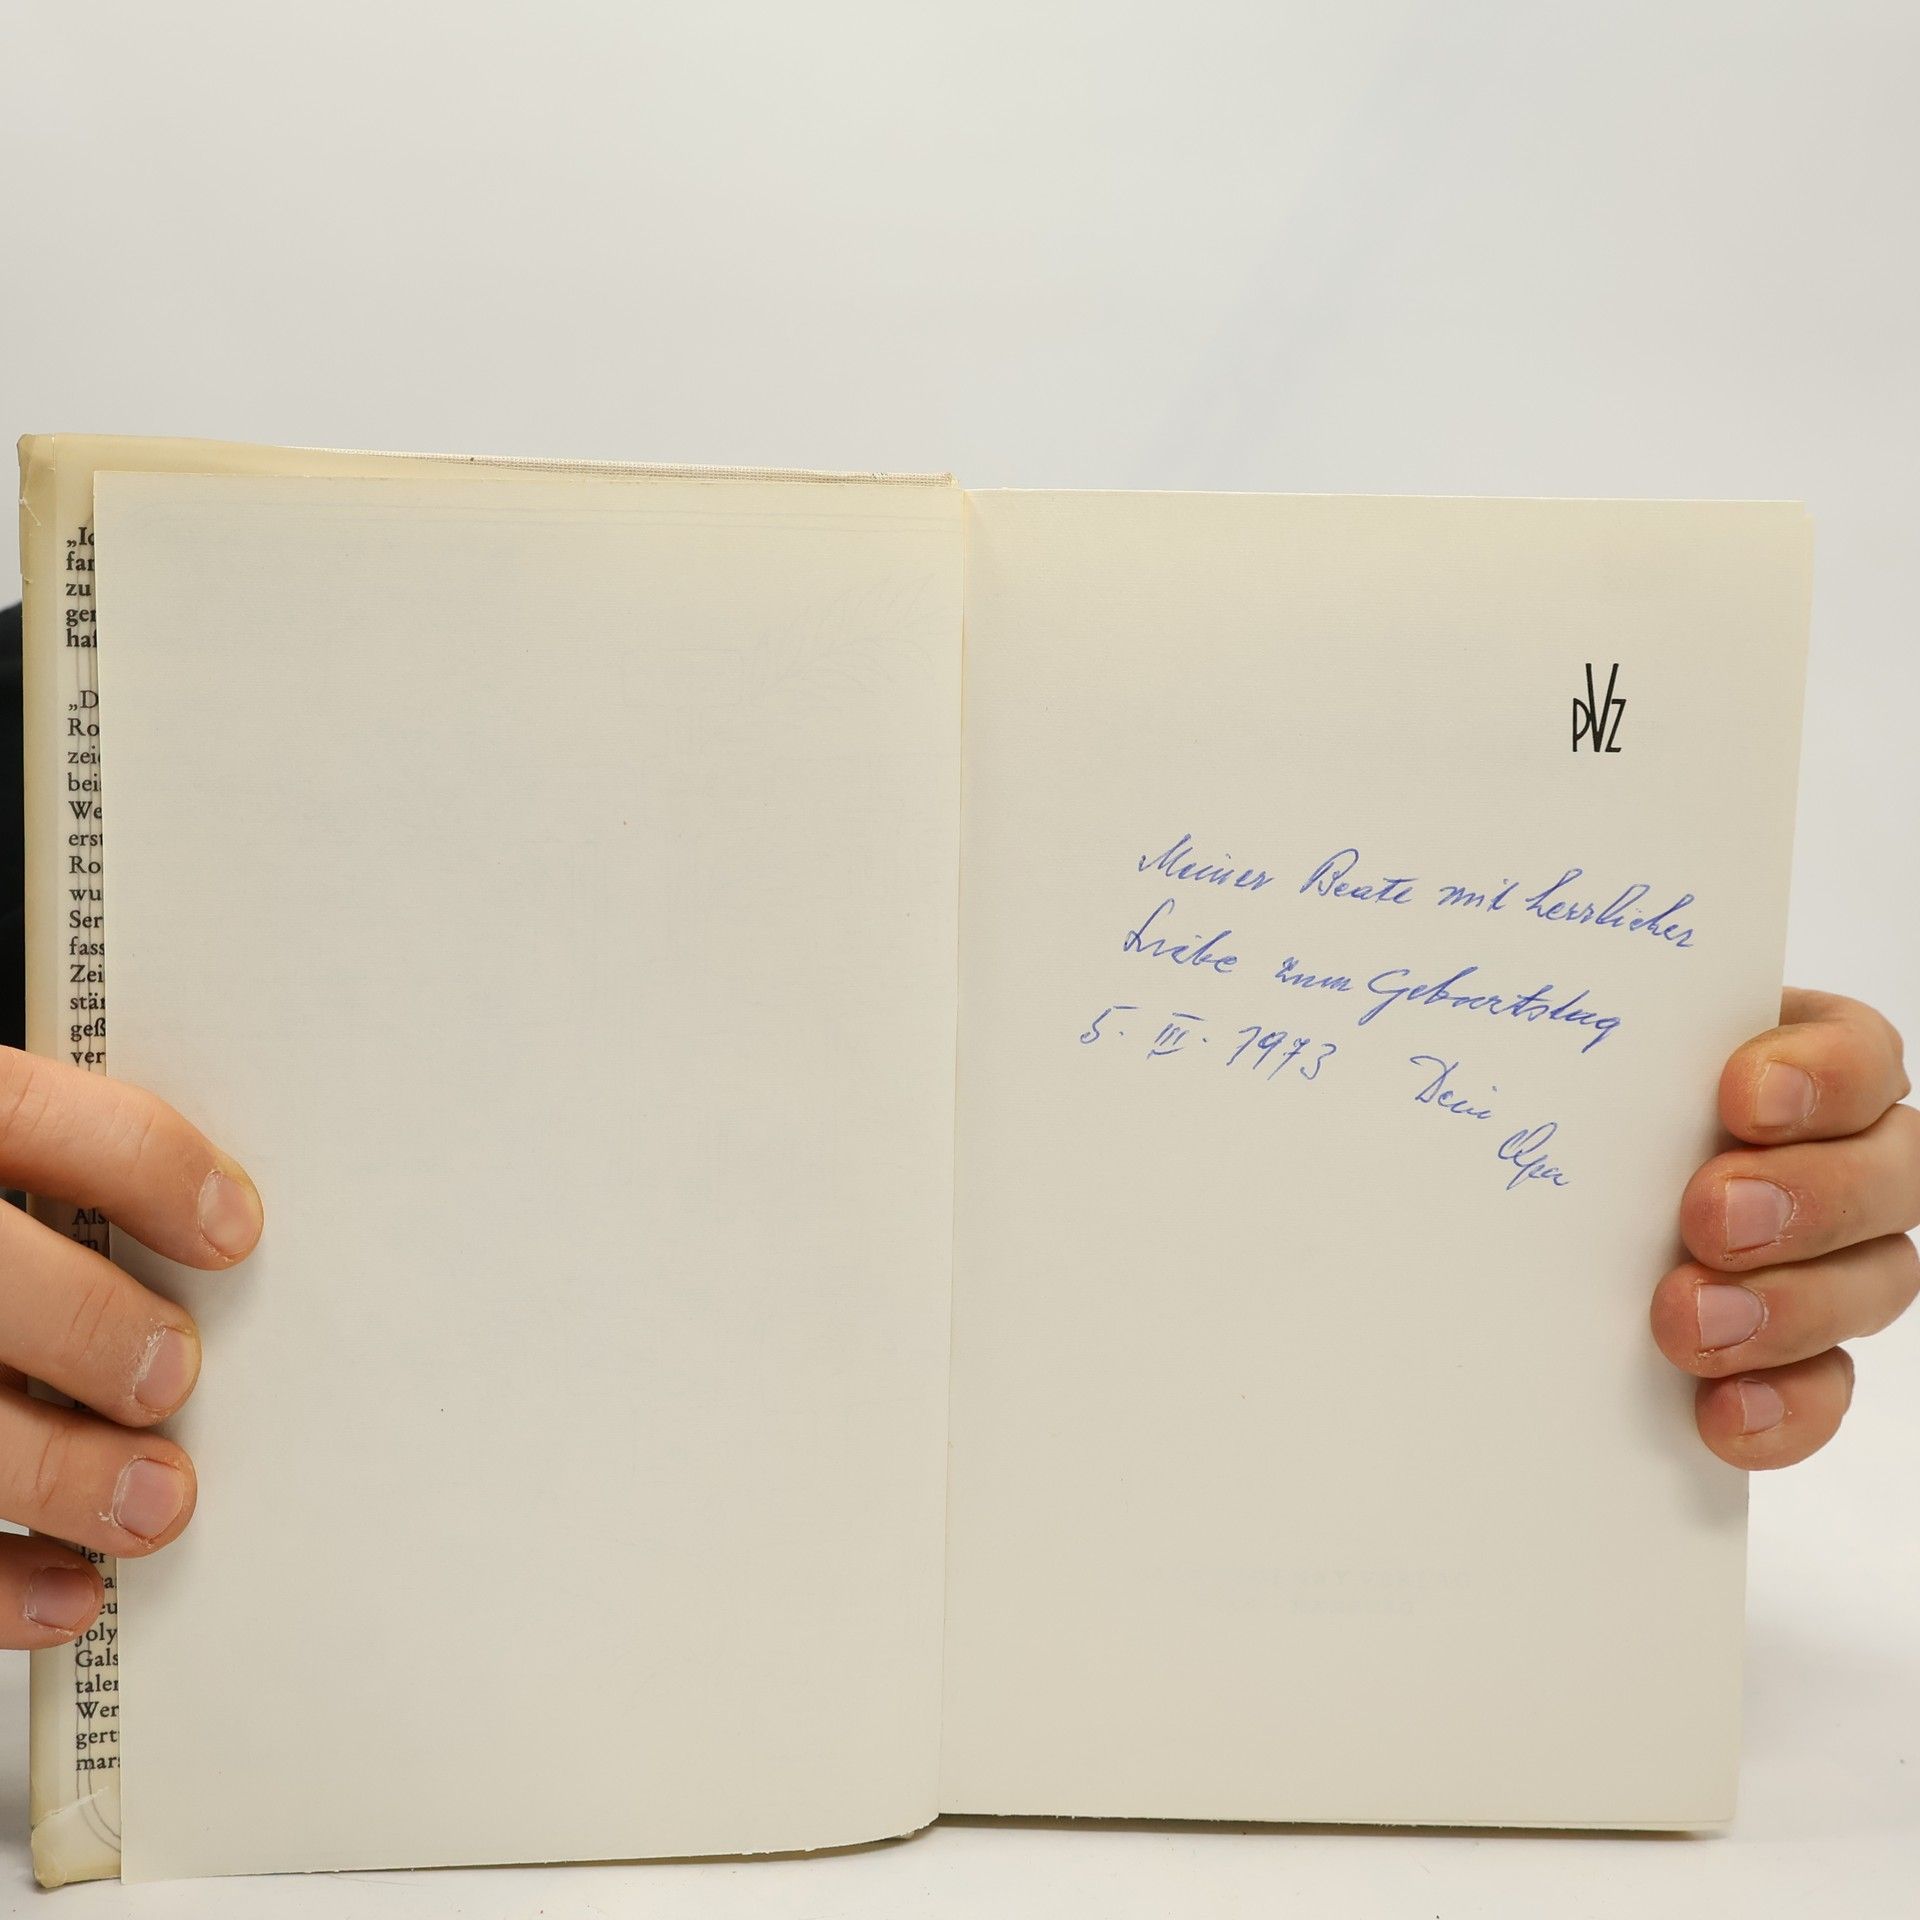 „Ic
fan
zu
gen
haf
„D
Ro
zeic
beis
We
erst
Ro
wu
Ser
fass
Zei
stän
geß
ver
Als
im
der
eu
joly
Gals
taler
Wer
gert
mars
PVZ
Meiner Beate mit herrlicher
Liebe zum Geburtstag
5. III. 1973 Dein
Opa